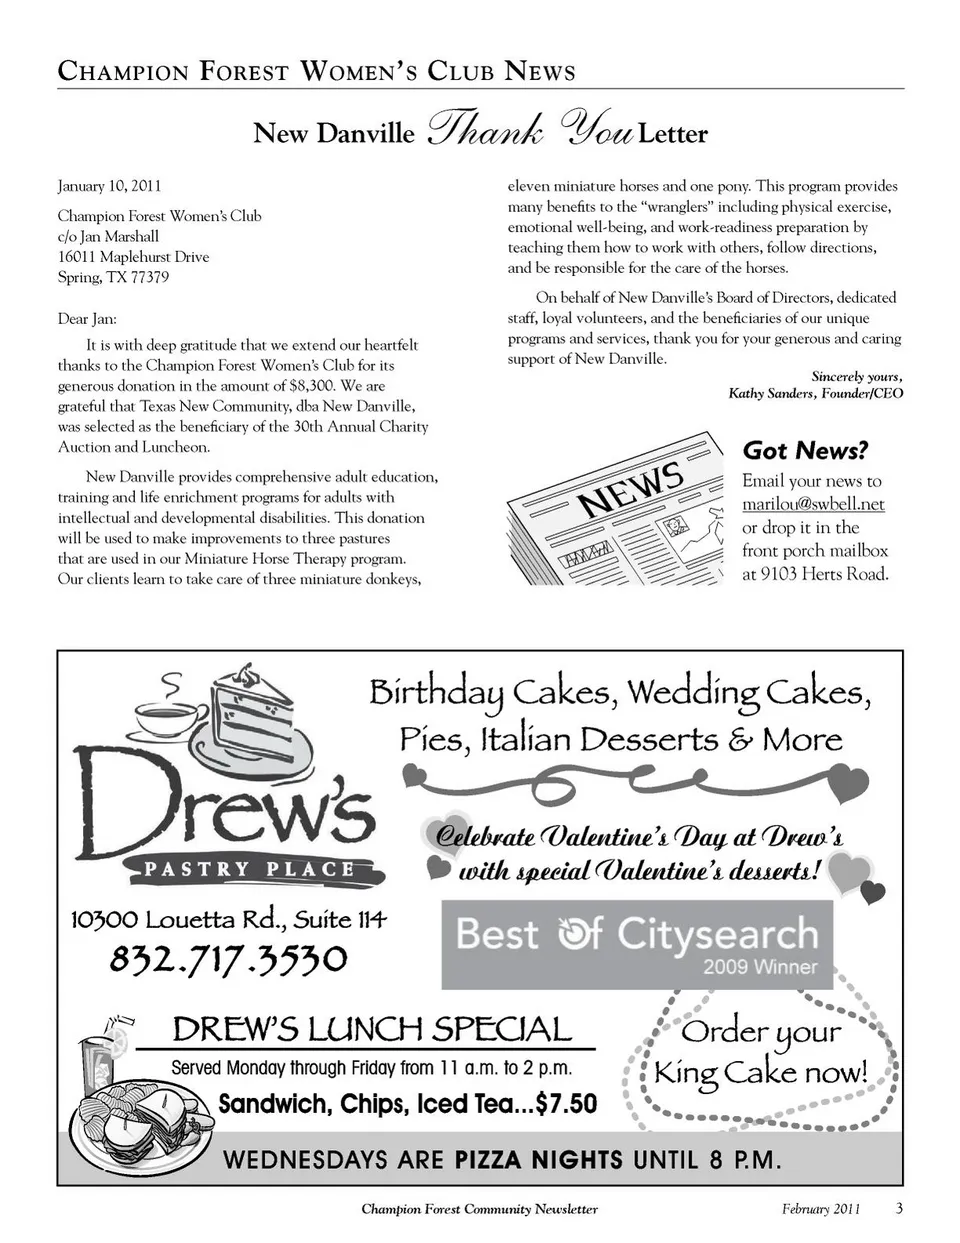 CHAMPION FOREST WOMEN'S CLUB NEWS
New Danville Thank You Letter
January 10, 2011
Champion Forest Women's Club
c/o Jan Marshall
16011 Maplehurst Drive
Spring, TX 77379
Dear Jan:
It is with deep gratitude that we extend our heartfelt
thanks to the Champion Forest Women's Club for its
generous donation in the amount of $8,300. We are
grateful that Texas New Community, dba New Danville,
was selected as the beneficiary of the 30th Annual Charity
Auction and Luncheon.
New Danville provides comprehensive adult education,
training and life enrichment programs for adults with
intellectual and developmental disabilities. This donation
will be used to make improvements to three pastures
that are used in our Miniature Horse Therapy program.
Our clients learn to take care of three miniature donkeys,
eleven miniature horses and one pony. This program provides
many benefits to the “wranglers” including physical exercise,
emotional well-being, and work-readiness preparation by
teaching them how to work with others, follow directions,
and be responsible for the care of the horses.
On behalf of New Danville's Board of Directors, dedicated
staff, loyal volunteers, and the beneficiaries of our unique
programs and services, thank you for your generous and caring
support of New Danville.
Sincerely yours,
Kathy Sanders, Founder/CEO
NEWS
Got News?
Email your news to
marilou@swbell.net
or drop it in the
front porch mailbox
at 9103 Herts Road.
Drew's
PASTRY PLACE
10300 Louetta Rd., Suite 114
832.717.3530
Birthday Cakes, Wedding Cakes,
Pies, Italian Desserts & More
Celebrate Valentine's Day at Drew's
with special Valentine's desserts!
Best Of Citysearch
2009 Winner
DREW'S LUNCH SPECIAL
Served Monday through Friday from 11 a.m. to 2 p.m.
Sandwich, Chips, Iced Tea...$7.50
Order your
King Cake now!
WEDNESDAYS ARE PIZZA NIGHTS UNTIL 8 P.M.
Champion Forest Community Newsletter February 2011 3